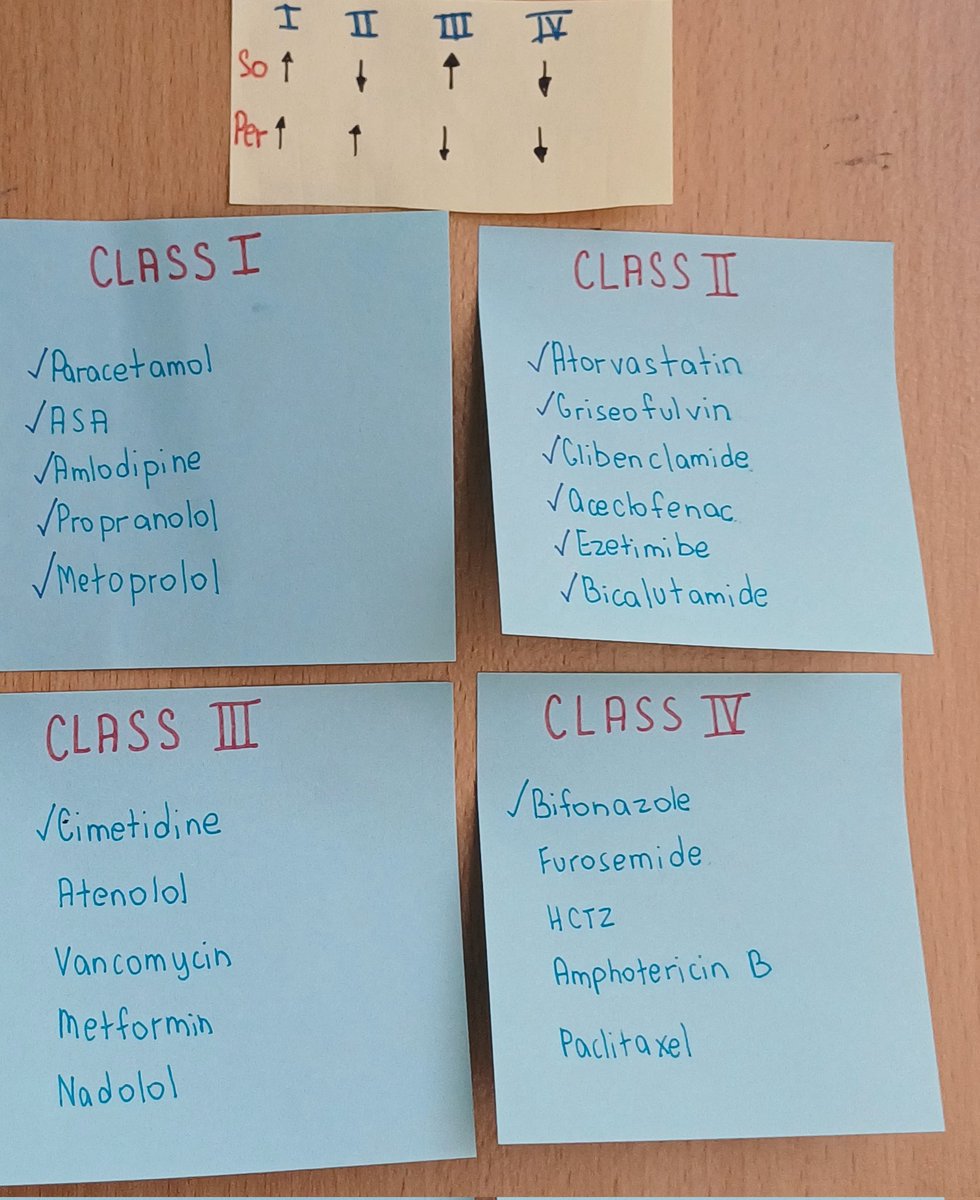 I II III IV
So ↑ ↓ ↑ ↓
Per ↑ ↑ ↓ ↓
CLASS I
✓Paracetamol
✓ASA
✓Amlodipine
✓Propranolol
✓Metoprolol
CLASS II
✓Atorvastatin
✓Griseofulvin
✓Glibenclamide
✓Aceclofenac
✓Ezetimibe
✓Bicalutamide
CLASS III
✓Cimetidine
Atenolol
Vancomycin
Metformin
Nadolol
CLASS IV
✓Bifonazole
Furosemide
HCTZ
Amphotericin B
Paclitaxel